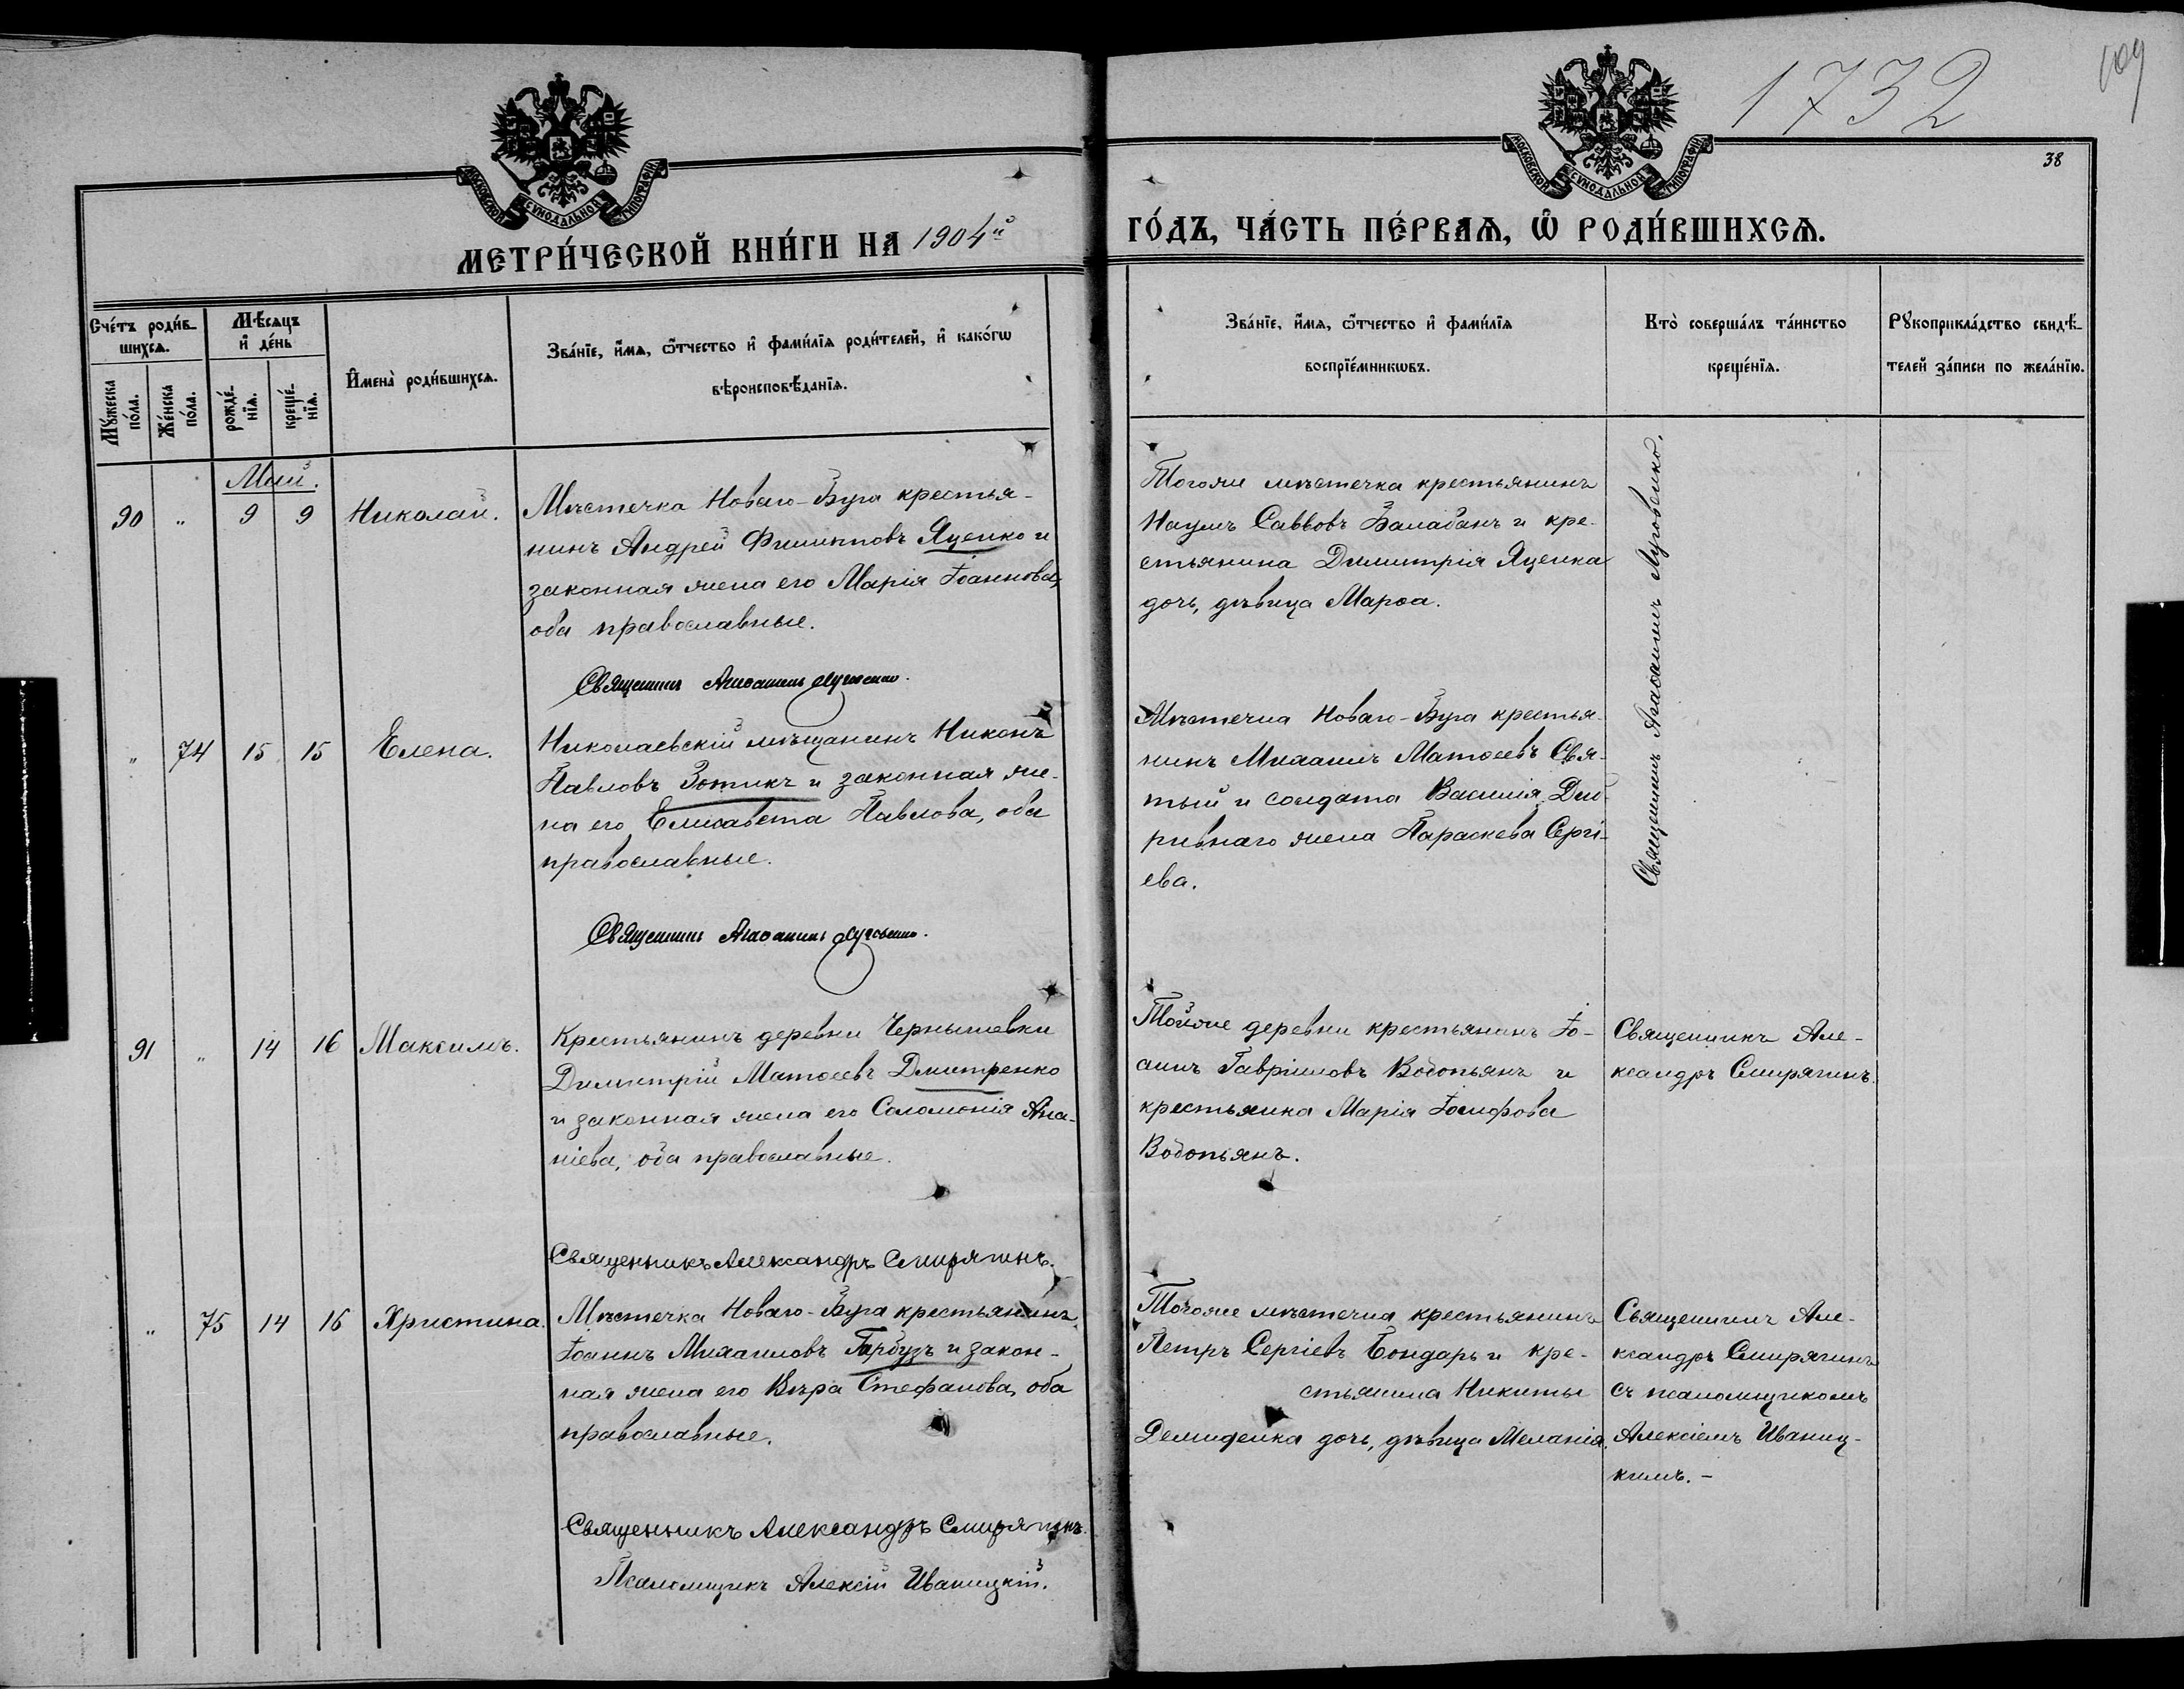 1732
109
38
МОСКОВСКОЙ СѴНОДАЛЬНОЙ ТИПОГРАФІИ
МОСКОВСКОЙ СѴНОДАЛЬНОЙ ТИПОГРАФІИ
МЕТРИ́ЧЕСКОЙ КНИ́ГИ НА 1904й
ГО́ДЪ, ЧА́СТЬ ПЕ́РВАѦ, Ѽ РОДИ́ВШИХСѦ.
Сче́тъ роди́в-
шихсѧ.
Мꙋ́жеска
по́ла.
Же́нска
по́ла.
Мѣ́сѧцъ
и҆ де́нь
рожде́-
нїѧ.
креще́-
нїѧ.
И҆мена̀ роди́вшихсѧ.
Зва́нїе, и҆́мѧ, ѻ҆́тчество и҆ фами́лїѧ роди́телей, и҆ како́гѡ
вѣроисповѣ́данїѧ.
Зва́нїе, и҆́мѧ, ѻ҆́тчество и҆ фами́лїѧ
воспрїе́мникѡвъ.
Кто̀ соверша́лъ та́инство
креще́нїѧ.
Рꙋкоприкла́дство свидѣ́-
телей за́писи по жела́нїю.
Май.
90 " 9 9 Николай.
Мѣстечка Новаго-Буга крестья-
нинъ Андрей Филипповъ Яценко и
законная жена его Марія Іоаннова,
оба православные.
Священникъ Агаѳангелъ Луговенко.
Тогоже мѣстечка крестьянинъ
Наумъ Саввовъ Балабанъ и кре-
стьянина Димитрія Яценка
дочь, дѣвица Марѳа.
Священникъ Агаѳангелъ Луговенко.
" 74 15 15 Елена.
Николаевскій мѣщанинъ Никонъ
Павловъ Зотикъ и законная же-
на его Елисавета Павлова, оба
православные.
Священникъ Агаѳангелъ Луговенко.
Мѣстечка Новаго-Буга крестья-
нинъ Михаилъ Матѳеевъ Свя-
тый и солдата Василія
ривнаго жена Параскева Сергі-
ева.
91 " 14 16 Максимъ.
Крестьянинъ деревни Чернышевки
Димитрій Матѳеевъ Дмитренко
и законная жена его Соломонія Ана-
ніева, оба православные.
Священникъ Александръ Смирягинъ.
Тойже деревни крестьянинъ Іо-
аннъ Гавріиловъ Водопьянъ и
крестьянка Марія Іосифова
Водопьянъ.
Священникъ Але-
ксандръ Смирягинъ.
" 75 14 16 Христина.
Мѣстечка Новаго-Буга крестьянинъ
Іоаннъ Михаиловъ Гарбузъ и закон-
ная жена его Вѣра Стефанова, оба
православные.
Священникъ Александръ Смирягинъ.
Псаломщикъ Алексій Иваницкій.
Тогоже мѣстечка крестьянинъ
Петръ Сергіевъ Бондарь и кре-
стьянина Никиты
Демиденка дочь, дѣвица Меланія.
Священникъ Але-
ксандръ Смирягинъ
съ псаломщикомъ
Алексіемъ Иваниц-
кимъ.-